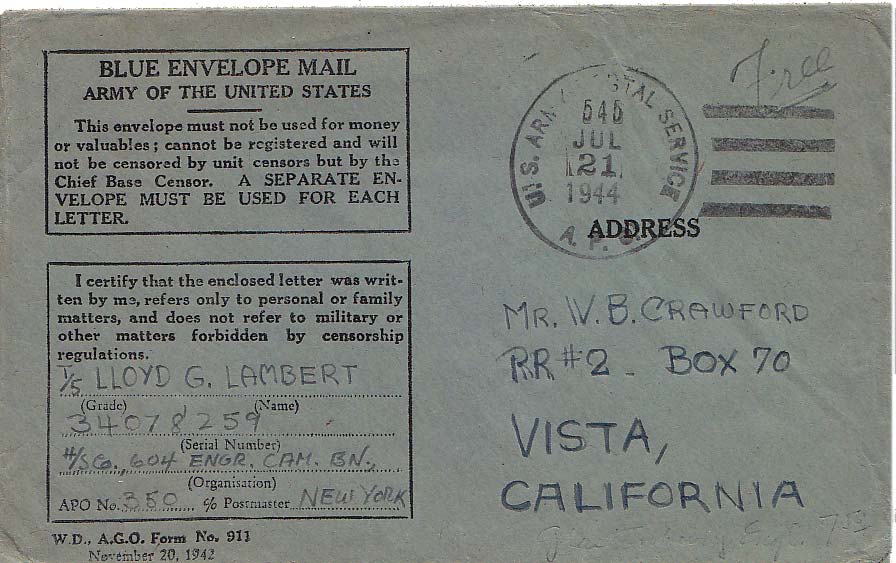 BLUE ENVELOPE MAIL
ARMY OF THE UNITED STATES
This envelope must not be used for money
or valuables; cannot be registered and will
not be censored by unit censors but by the
Chief Base Censor. A SEPARATE EN-
VELOPE MUST BE USED FOR EACH
LETTER.
I certify that the enclosed letter was writ-
ten by me, refers only to personal or family
matters, and does not refer to military or
other matters forbidden by censorship
regulations.
T/5 LLOYD G. LAMBERT
(Grade) (Name)
34078259
(Serial Number)
H/S Co. 604 ENGR. CAM. BN.,
(Organisation)
APO No. 350 c/o Postmaster NEW YORK
W.D., A.G.O. Form No. 911
November 20, 1942
Free
U.S. ARMY POSTAL SERVICE
545
JUL
21
1944
A. P. O.
ADDRESS
MR. W. B. CRAWFORD
RR #2 - BOX 70
VISTA,
CALIFORNIA